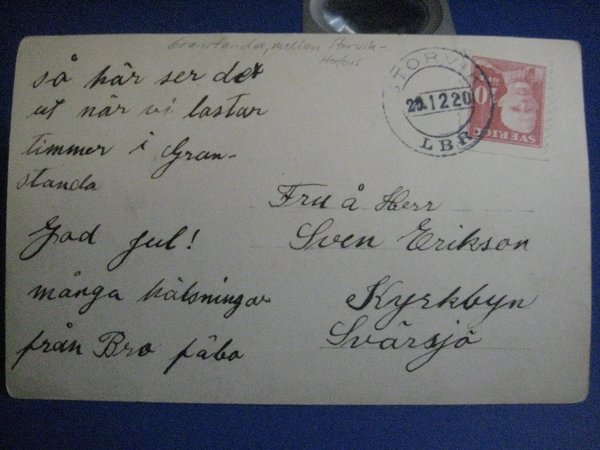 Granstanda, mellan Storvik-
Hofors
så här ser det
ut när vi lastar
timmer i Gran-
standa
God jul!
många hälsningar
från Bro fäbo
STORVIK
29.12.20
LBR
SVERIGE
Fru å Herr
Sven Erikson
Kyrkbyn
Svärsjö